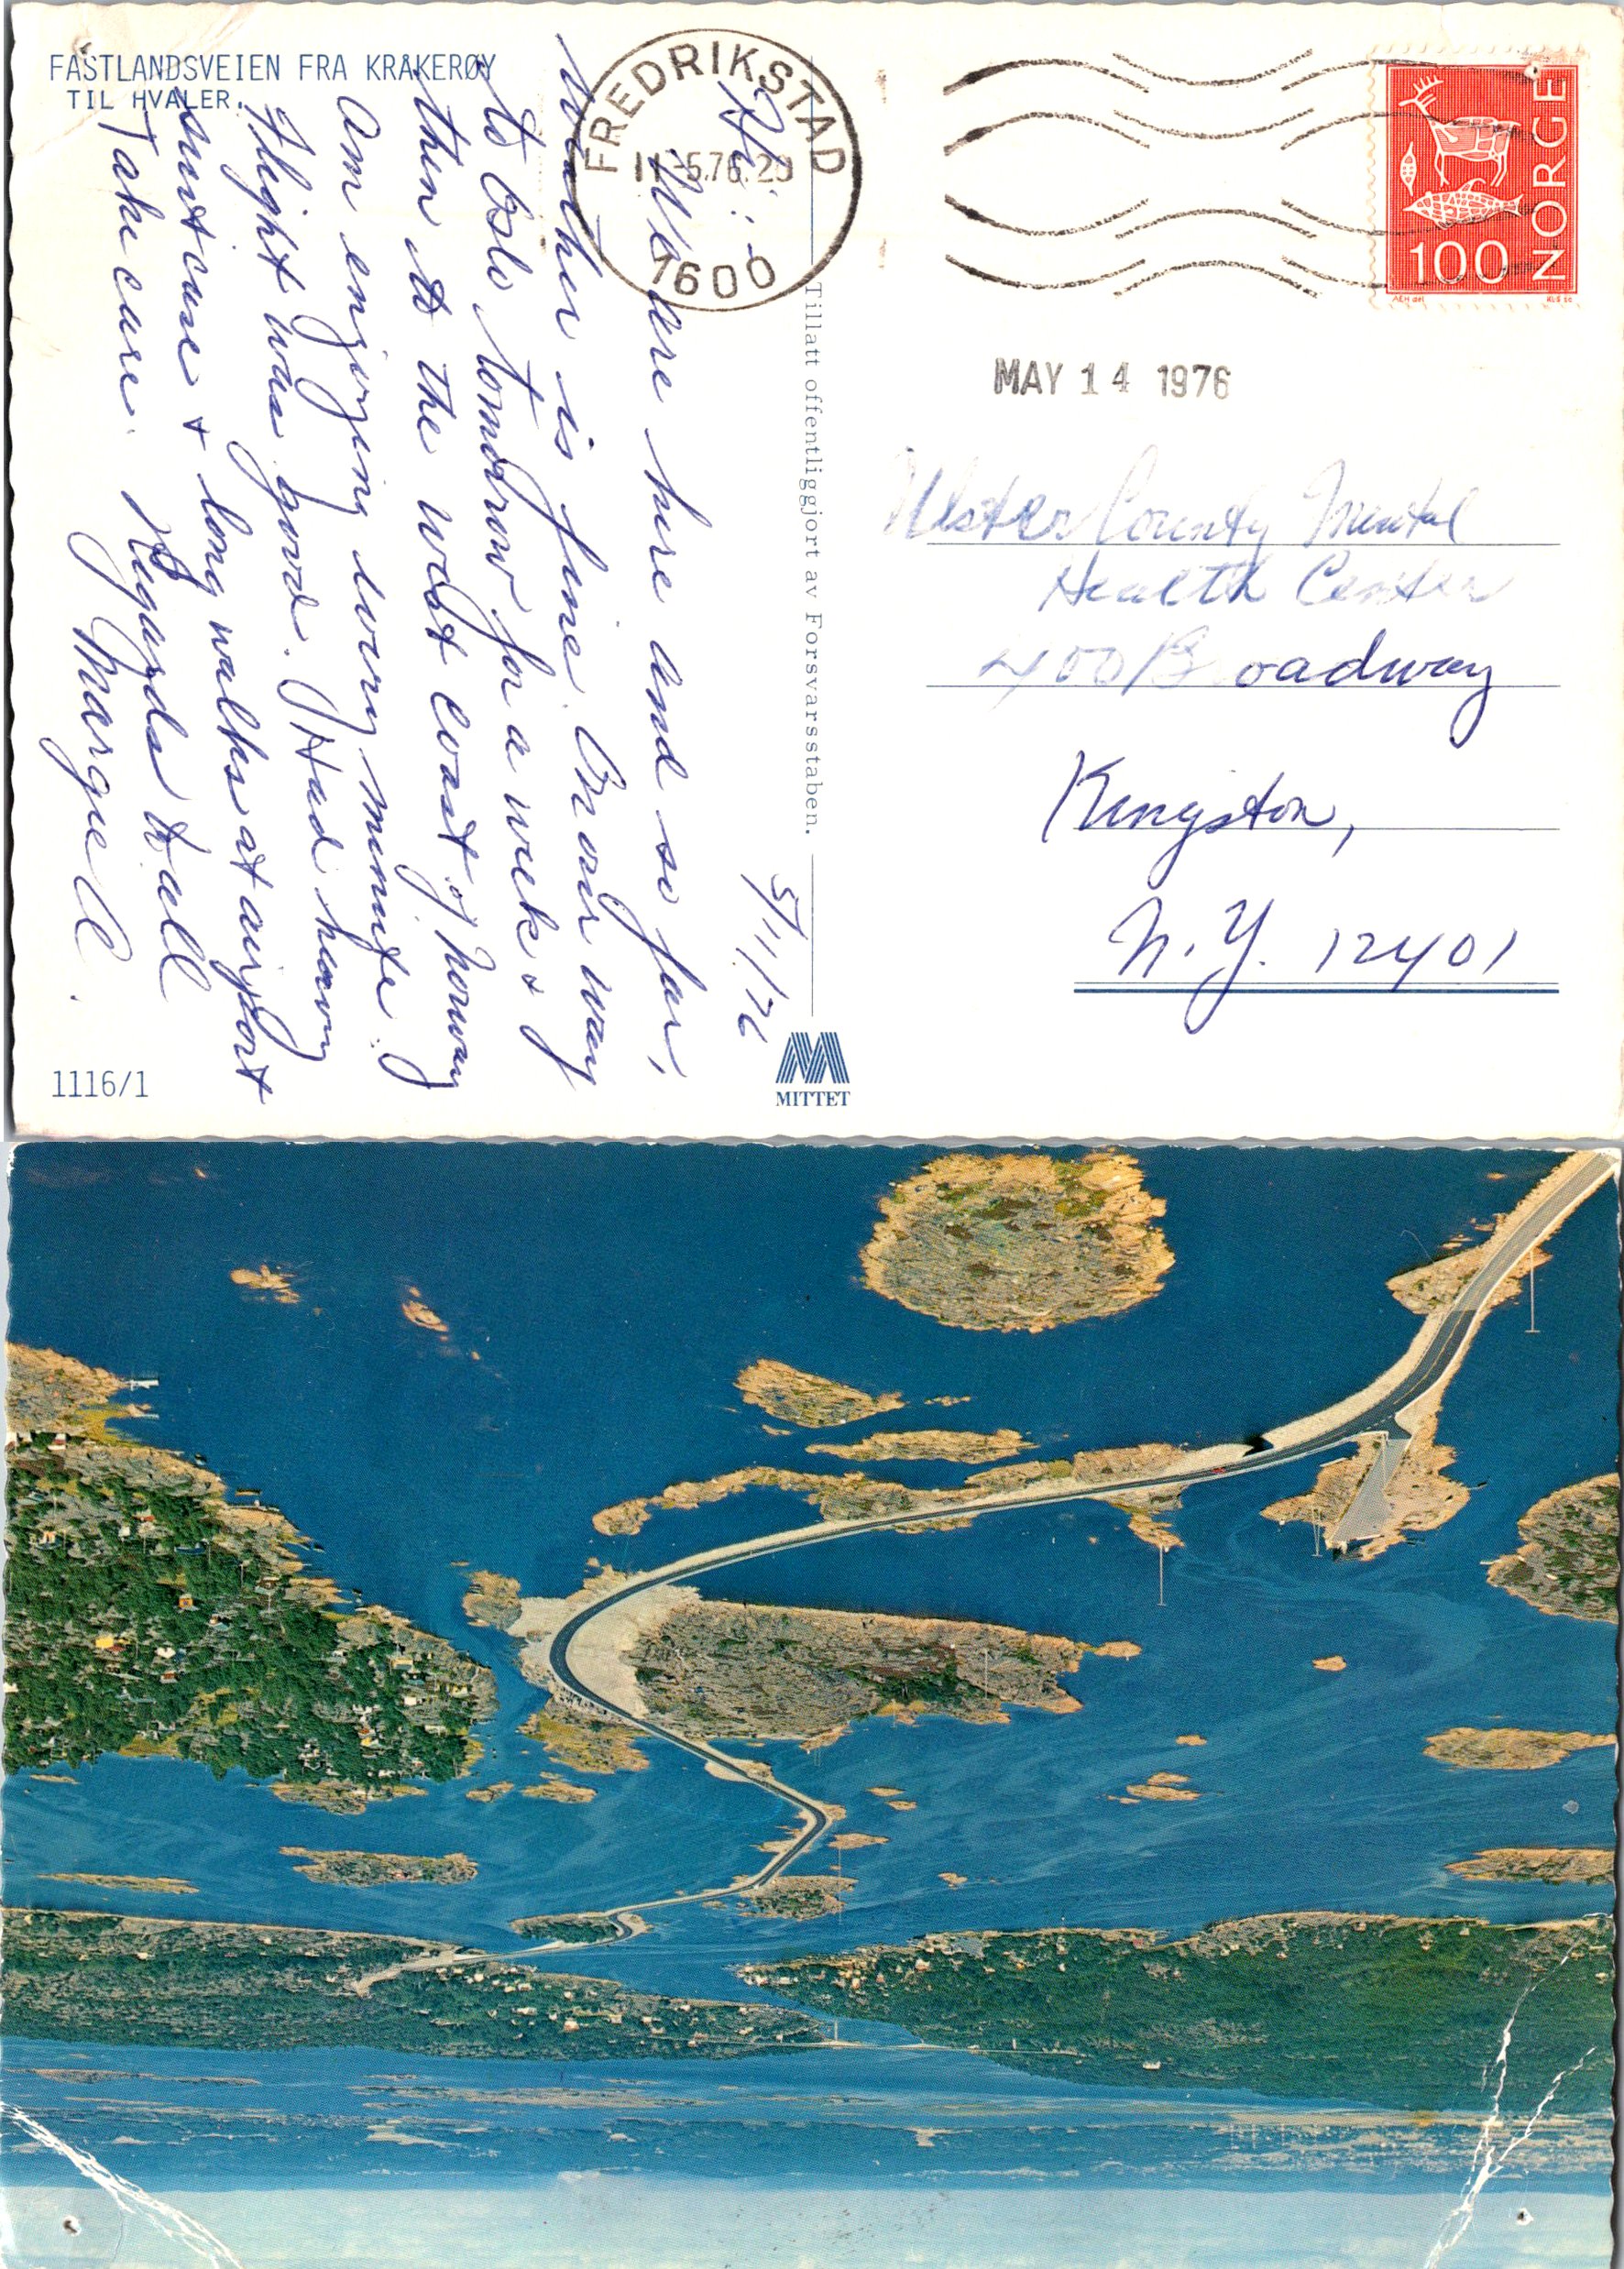 FASTLANDSVEIEN FRA KRÅKERØY
TIL HVALER.
Hi:
5/11/76
We are here and so far,
weather is fine. On our way
to Oslo tomorrow for a week &
then to the west coast of Norway
Am enjoying every minute.
Flight was good. Had heavy
suitcase & long walks at airport
Take care. Regards to all
Margie C.
1116/1
Tillatt offentliggjort av Forsvarsstaben.
MITTET
FREDRIKSTAD
11.-5.76.20
1600
NORGE
100
AEH del
KLS sc
MAY 14 1976
Ulster County Mental
Health Center
400 Broadway
Kingston,
N.Y. 12401